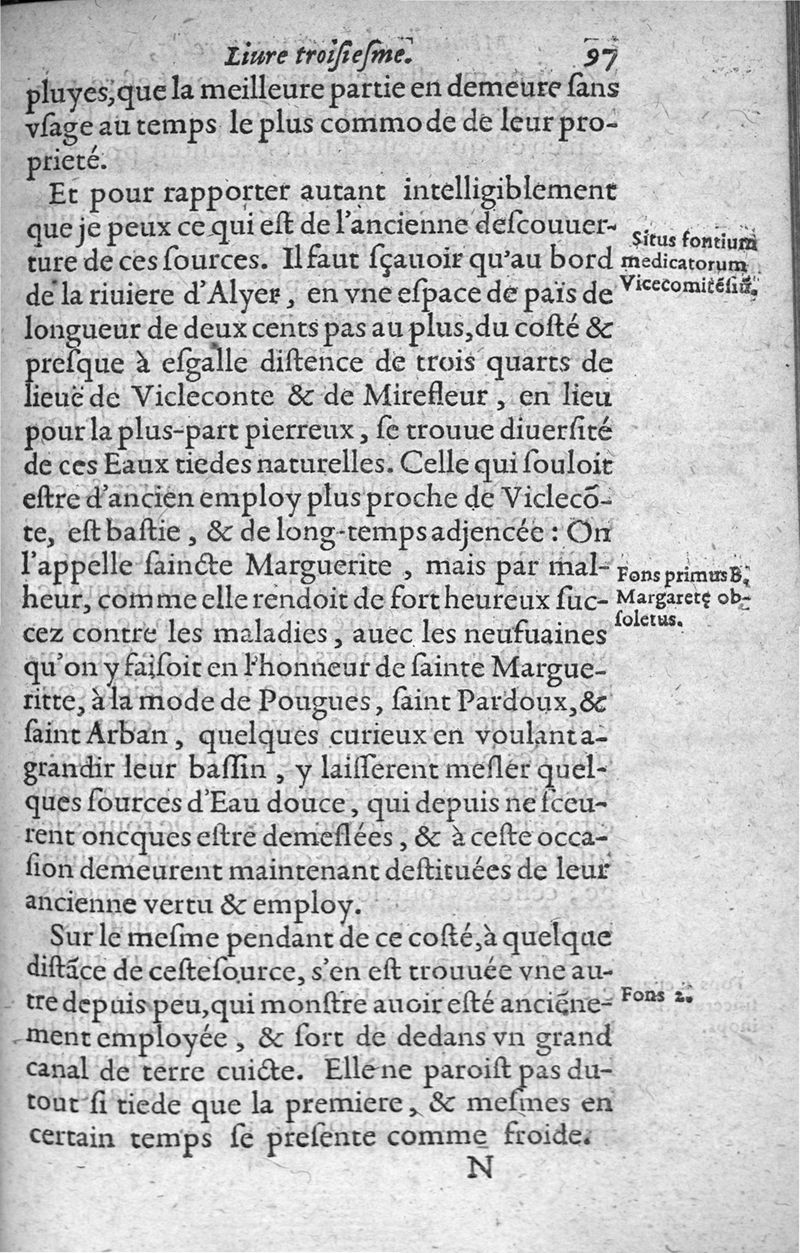 Liure troisiesme. 97
pluyes, que la meilleure partie en demeure ſans
vſage au temps le plus commode de leur pro-
prieté.
Et pour rapporter autant intelligiblement
que je peux ce qui eſt de l'ancienne deſcouuer-
ture de ces ſources. Il faut ſçauoir qu'au bord
de la riuiere d'Alyer, en vne eſpace de païs de
longueur de deux cents pas au plus, du coſté &
preſque à eſgalle diſtence de trois quarts de
lieuë de Vicleconte & de Mirefleur, en lieu
pour la plus-part pierreux, ſe trouue diuerſité
de ces Eaux tiedes naturelles. Celle qui ſouloit
eſtre d'ancien employ plus proche de Viclecõ-
te, eſt baſtie, & de long-temps adjencée : On
l'appelle ſaincte Marguerite, mais par mal-
heur, comme elle rendoit de fort heureux ſuc-
cez contre les maladies, auec les neufuaines
qu'on y faiſoit en l'honneur de ſainte Margue-
ritte, à la mode de Pougues, ſaint Pardoux, &
ſaint Arban, quelques curieux en voulant a-
grandir leur baſſin, y laiſſerent meſler quel-
ques ſources d'Eau douce, qui depuis ne ſceu-
rent oncques eſtre demeſlées, & à ceſte occa-
ſion demeurent maintenant deſtituées de leur
ancienne vertu & employ.
Sur le meſme pendant de ce coſté, à quelque
diſtãce de ceſte ſource, s'en eſt trouuée vne au-
tre depuis peu, qui monſtre auoir eſté anciéne-
ment employée, & ſort de dedans vn grand
canal de terre cuicte. Elle ne paroiſt pas du-
tout ſi tiede que la premiere, & meſmes en
certain temps ſe preſente comme froide.
N
Situs fontium
medicatorum
Vicecomitéſiũ.
Fons primus B.
Margaretę ob-
ſoletus.
Fons 2.